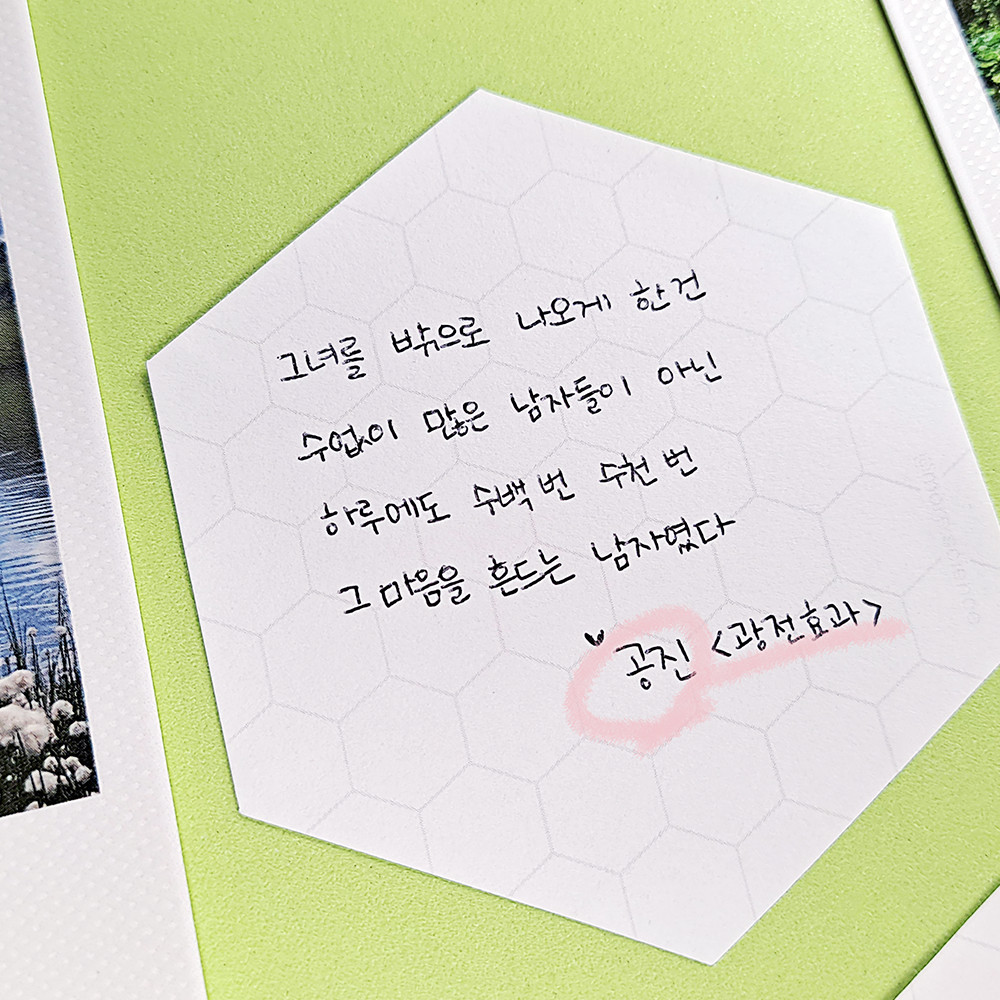 그녀를 밖으로 나오게 한건
수없이 많은 남자들이 아닌
하루에도 수백번 수천번
그 마음을 흔드는 남자였다
공진 <광전효과>